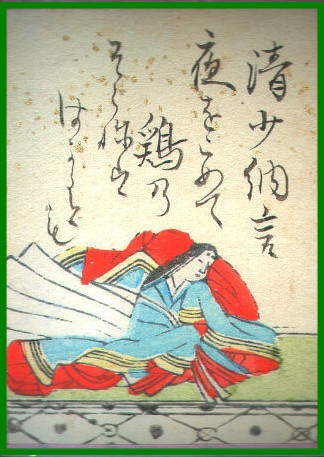 清少納言
夜をこめて
鶏の
そらねは
はかるとも